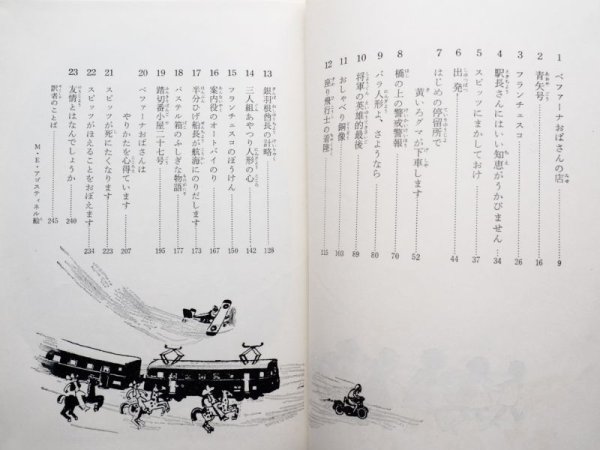 1 ベファーナおばさんの店 9
2 青矢号 16
3 フランチェスコ 26
4 駅長さんにはいい知恵がうかびません 34
5 スピッツにまかしておけ 37
6 出発 44
7 はじめの停留所で
黄いろグマが下車します 52
8 橋の上の警戒警報 70
9 バラ人形よ、さようなら 80
10 将軍の英雄的最後 89
11 おしゃべり銅像 103
12 座り飛行士の着陸 115
13 銀羽根酋長の計略 128
14 三人組あやつり人形の心 142
15 フランチェスコのぼうけん 150
16 案内役のオートバイのり 167
17 半分ひげ船長が航海にのりだします 173
18 パステル箱のふしぎな物語 177
19 踏切番小屋二十七号 195
20 ベファーナおばさんは
やりかたを心得ています 207
21 スピッツが死にたくなります 223
22 スピッツがほえることをおぼえます 234
23 友情とはなんでしょうか 240
訳者のことば 245
M・E・アゴスティネルリ絵